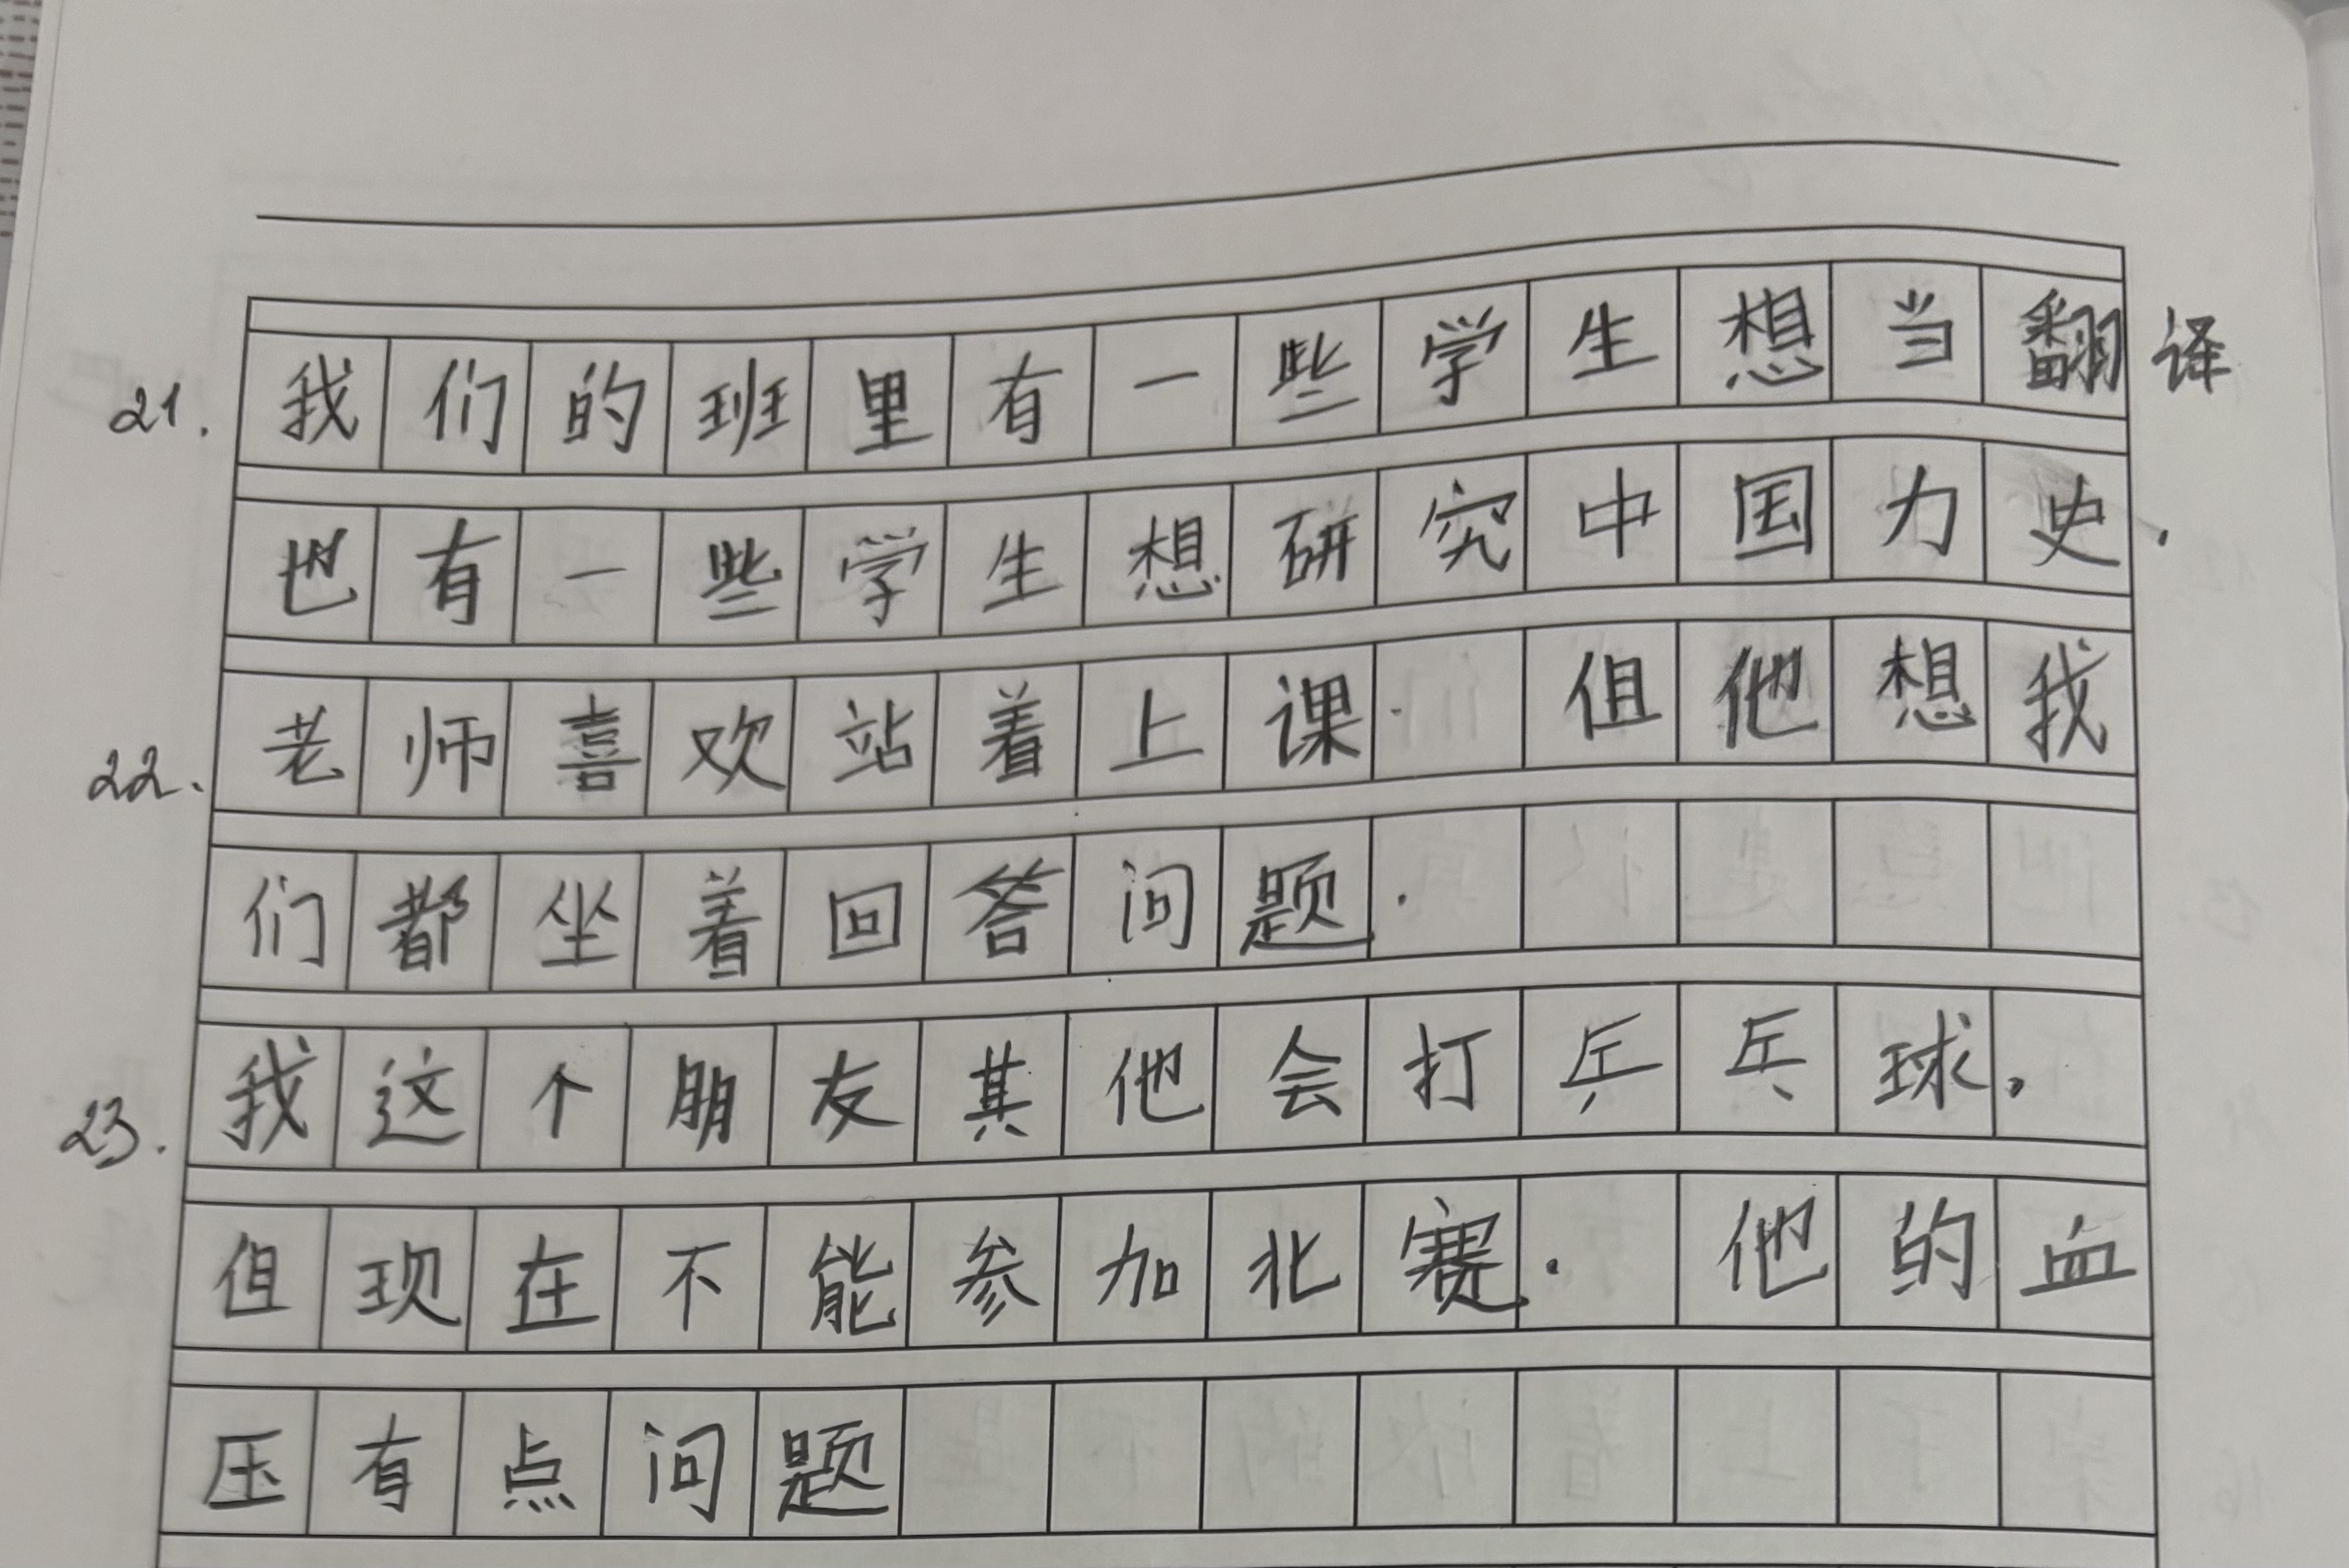 21. 我们的班里有一些学生想当翻译
也有一些学生想研究中国力史.
22. 老师喜欢站着上课. 但他想我
们都坐着回答问题.
23. 我这个朋友其他会打乒乓球,
但现在不能参加北赛. 他的血
压有点问题